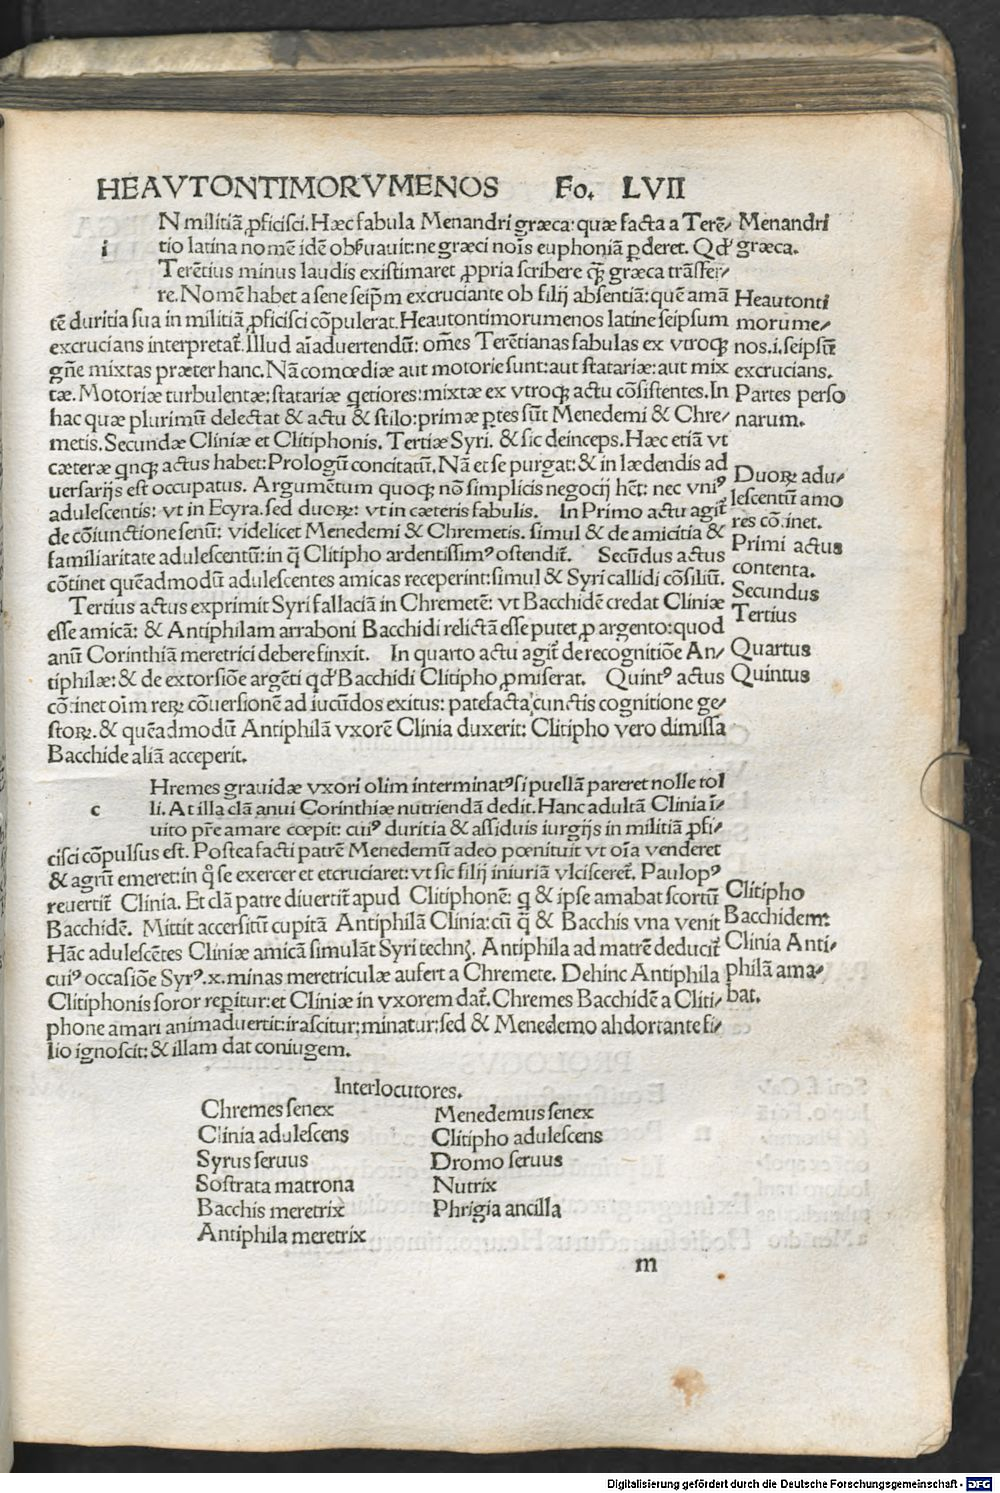 HEAVTONTIMORVMENOS Fo. LVII
i
N militiā ꝓficiſci. Hæc fabula Menandri græca: quæ facta a Terē/
tio latina nomē idē obſeruauit: ne græci noīs euphoniā ꝑderet. Qđ
Terētius minus laudis exiſtimaret ꝓpria ſcribere q̄ꝫ græca trāſfer/
re. Nomē habet a ſene ſeip̄m excruciante ob filij abſentiā: quē amā
tē duritia ſua in militiā ꝓficiſci cōpulerat. Heautontimorumenos latine ſeipſum
excrucians interpretat̃. Illud aīaduertendū: om̄es Terētianas fabulas ex vtroqꝫ
gn̄e mixtas præter hanc. Nā comœdiæ aut motorie ſunt: aut ſtatariæ: aut mix
tæ. Motoriæ turbulentæ: ſtatariæ quetiores: mixtæ ex vtroqꝫ actu cōſiſtentes. In
hac quæ plurimū delectat & actu & ſtilo: primæ ꝑtes ſūt Menedemi & Chre/
metis. Secundæ Cliniæ et Clitiphonis. Tertiæ Syri. & ſic deinceps. Hæc etiā vt
cæteræ qnqꝫ actus habet: Prologū concitatū. Nā et ſe purgat: & in lædendis ad
uerſarijs eſt occupatus. Argumētum quoqꝫ nō ſimplicis negocij hēt: nec vniꝰ
aduleſcentis: vt in Ecyra. ſed duoꝝ: vt in cæteris fabulis. In Primo actu agit̃
de cōiunctione ſenū: videlicet Menedemi & Chremetis. ſimul & de amicitia &
familiaritate aduleſcentū: in q̄ Clitipho ardentiſſimꝰ oſtendit̃. Secūdus actus
cōtinet quēadmodū adulеſcentes amicas receperint: ſimul & Syri callidi cōſiliū.
Tertius actus exprimit Syri fallaciā in Chremetē: vt Bacchidē credat Cliniæ
eſſe amicā: & Antiphilam arraboni Bacchidi relictā eſſe putet ꝓ argento: quod
anū Corinthiā meretrici debere finxit. In quarto actu agit̃ de recognitiōe An/
tiphilæ: & de extorſiōe argēti qđ Bacchidi Clitipho ꝓmiſerat. Quintꝰ actus
cōtinet oīm reꝝ cōuerſionē ad iucūdos exitus: patefacta cunctis cognitione ge/
ſtoꝝ. & quēadmodū Antiphilā vxorē Clinia duxerit: Clitipho vero dimiſſa
Bacchide aliā acceperit.
Menandri
græca.
Heautonti
morume/
nos. i. ſeipſū
excrucians.
Partes perſo
narum.
Duoꝝ adu/
leſcentū amo
res cōtinet.
Primi actus
contenta.
Secundus
Tertius
Quartus
Quintus
c
Hremes grauidæ vxori olim interminatꝰ ſi puellā pareret nolle tol
li. At illa clā anui Corinthiæ nutriendā dedit. Hanc adultā Clinia ī/
uito pr̄e amare cœpit: cuiꝰ duritia & aſſiduis iurgijs in militiā ꝓfi/
ciſci cōpulſus eſt. Poſtea facti patrē Menedemū adeo pœnituit vt oīa venderet
& agrū emeret: in q̄ ſe exerceret et cruciaret: vt ſic filij iniuriā vlciſceret̃. Paulo pꝰ
reuertit̃ Clinia. Et clā patre diuertit̃ apud Clitiphonē: q & ipſe amabat ſcortū
Bacchidē. Mittit accerſitū cupitā Antiphilā Clinia: cū q̄ & Bacchis vna venit
Hāc adulеſcētes Cliniæ amicā ſimulāt Syri techn. Antiphila ad matrē deducit̃
cuiꝰ occaſiōe Syrꝰ .x. minas meretriculæ aufert a Chremete. Dehinc Antiphila
Clitiphonis ſoror repitur: et Cliniæ in vxorem dat̃. Chremes Bacchidē a Cliti/
phone amari animaduertit: iraſcitur: minatur: ſed & Menedemo ahdortante fi/
lio ignoſcit: & illam dat coniugem.
Clitipho
Bacchidem:
Clinia Anti/
philā ama/
bat.
Interlocutores.
Chremes ſenex Menedemus ſenex
Clinia aduleſcens Clitipho aduleſcens
Syrus ſeruus Dromo ſeruus
Soſtrata matrona Nutrix
Bacchis meretrix Phrigia ancilla
Antiphila meretrix
m
Digitalisierung gefördert durch die Deutsche Forschungsgemeinschaft - DFG